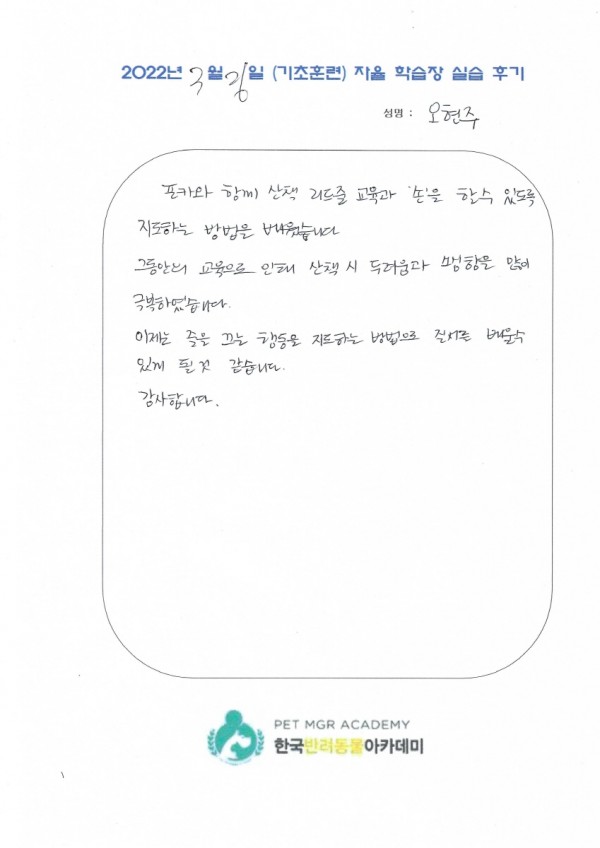 2022년 3월 26일 (기초훈련) 자율 학습장 실습 후기
성명 : 오현주
포카와 함께 산책 리드줄 교육과 '손'을 할수 있도록
지도하는 방법을 배웠습니다
그동안의 교육으로 인해 산책 시 두려움과 경향을 많이
극복하였습니다.
이제는 줄을 끄는 행동을 지도하는 방법으로 질서를 배울수
있게 될 것 같습니다.
감사합니다.
PET MGR ACADEMY
한국반려동물아카데미